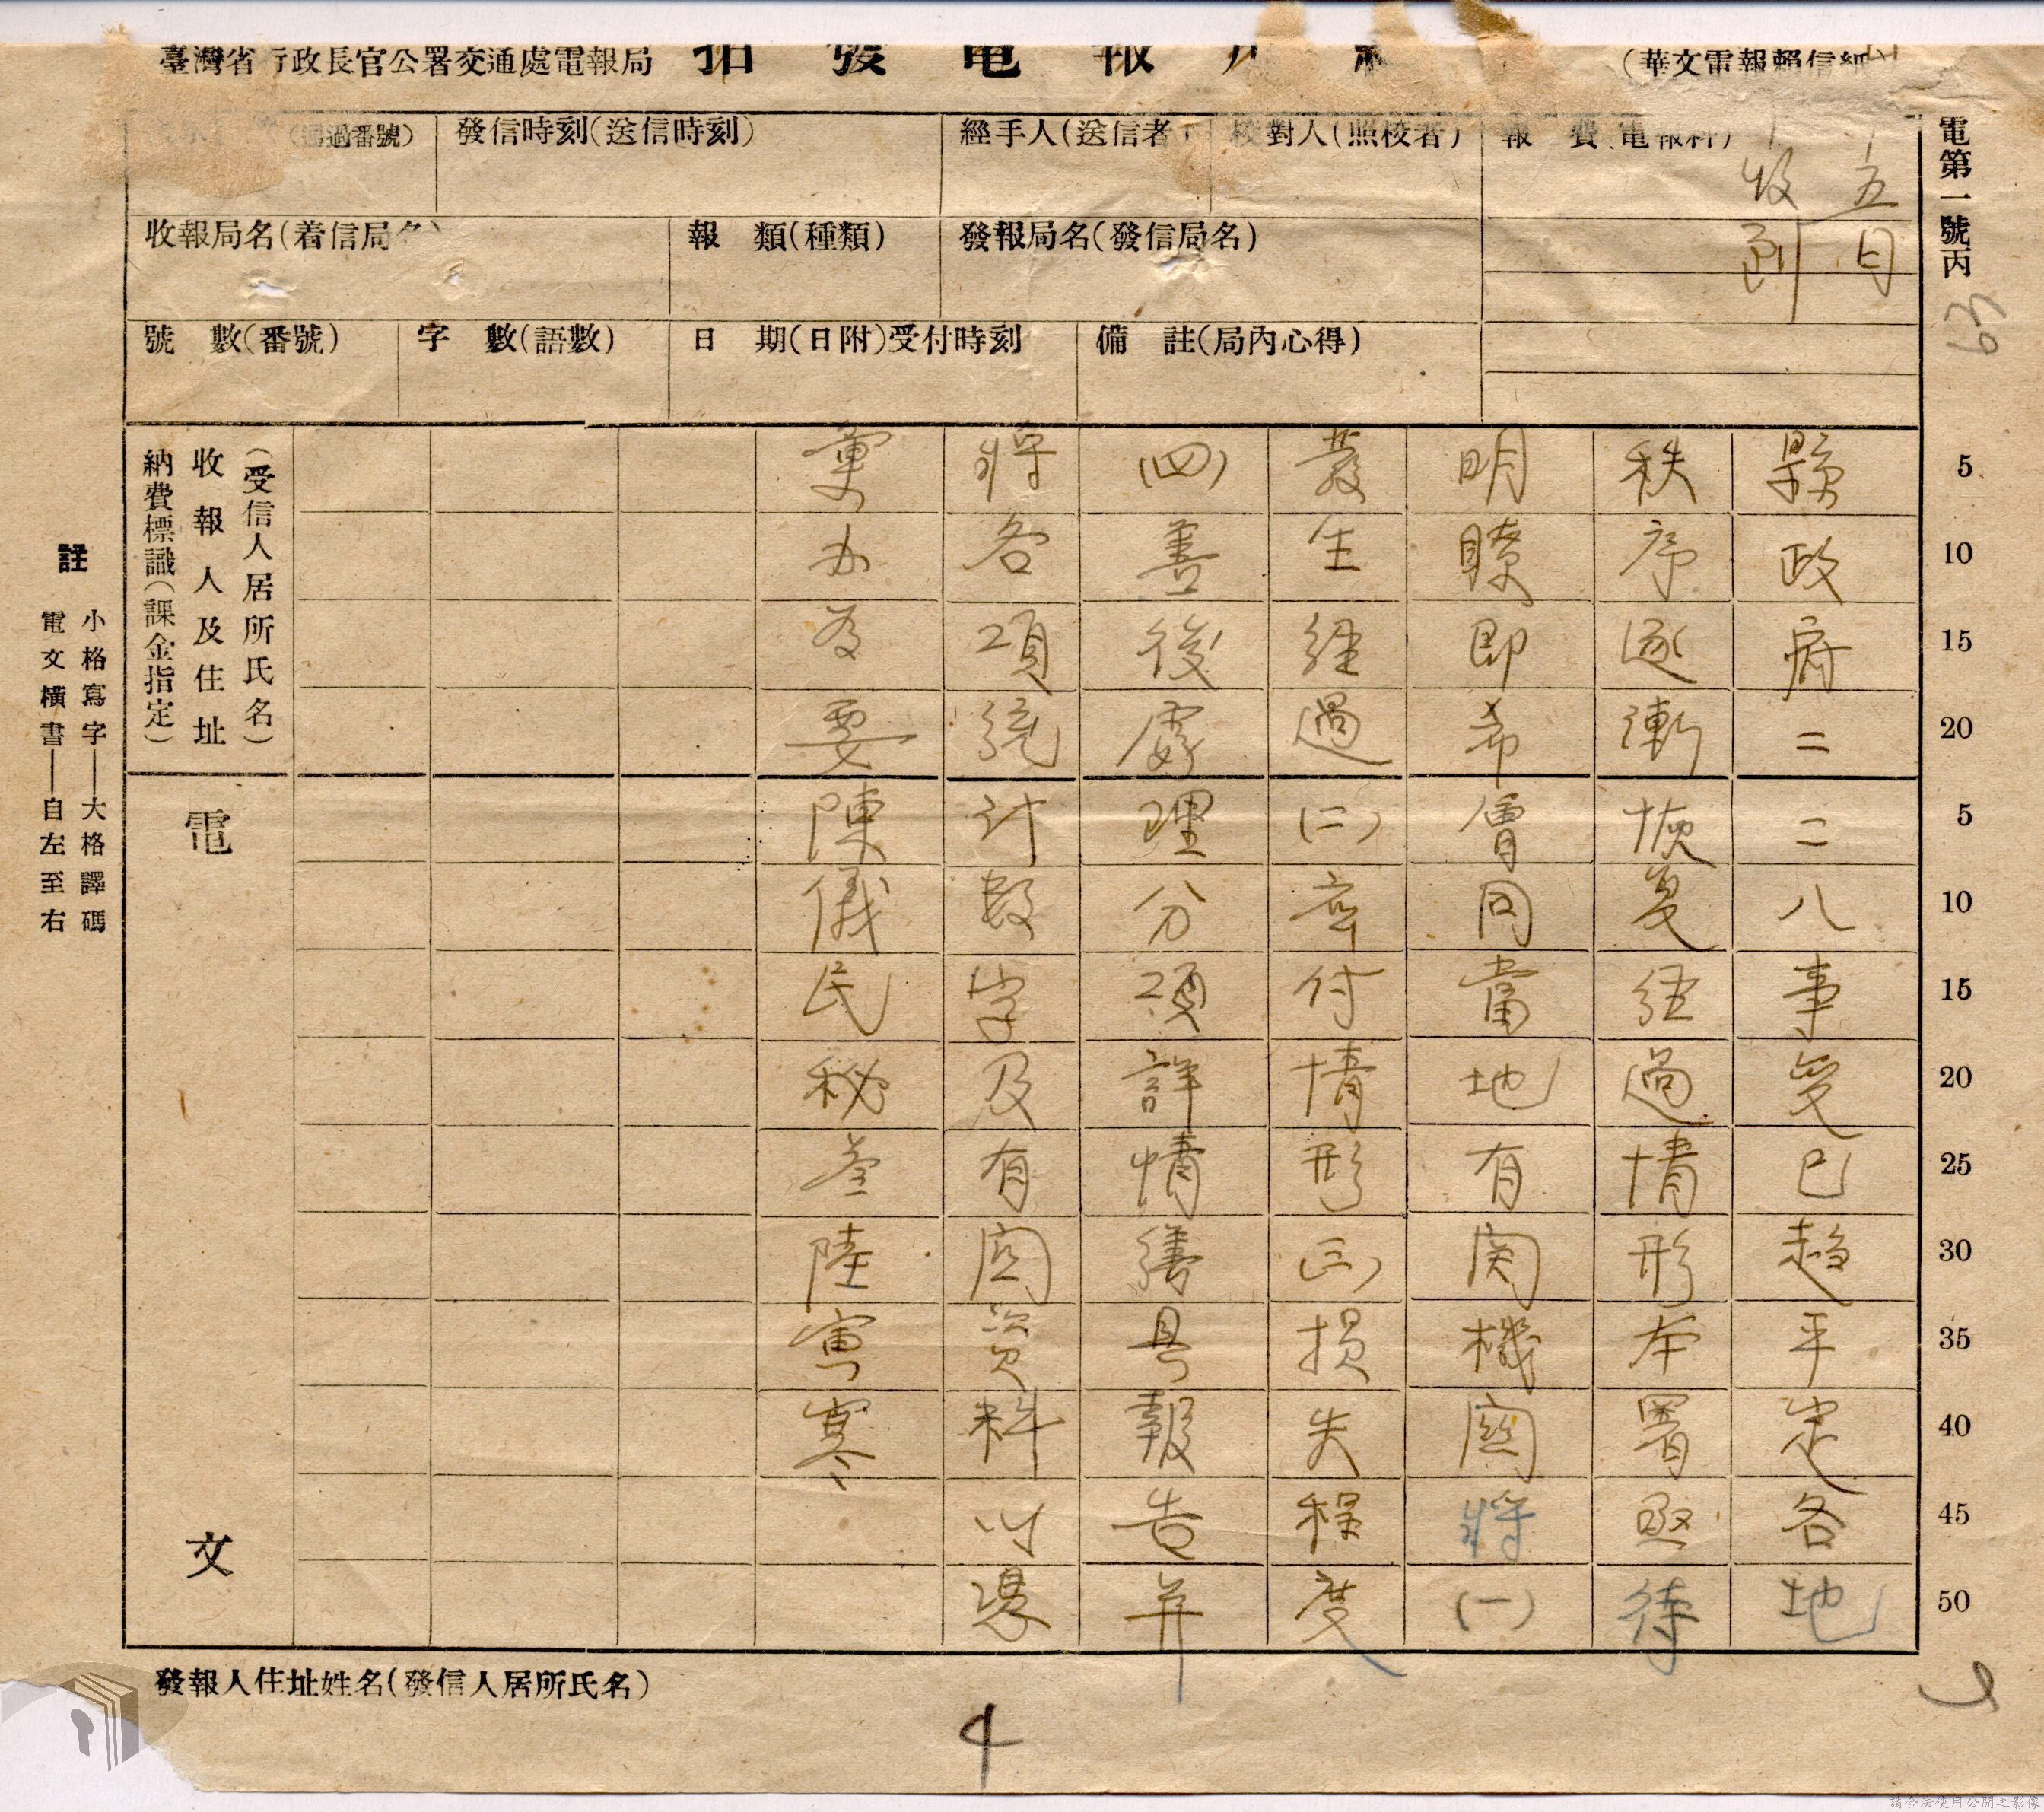 臺灣省行政長官公署交通處電報局 拍發電報用紙 (華文電報賴信紙)
(通過番號) 發信時刻(送信時刻) 經手人(送信者) 校對人(照校者) 報費(電報料)
五日
收到
電第一號丙
63
收報局名(着信局名) 報類(種類) 發報局名(發信局名)
號數(番號) 字數(語數) 日期(日附)受付時刻 備註(局內心得)
5
10
15
20
5
10
15
20
25
30
35
40
45
50
縣政府二二八事變已趨平定各地
秩序逐漸恢复経過情形本署亟待
明瞭即希會同當地有関機関將(一)
發生経過(二)应付情形(三)損失程度
(四)善後處理分項詳情繕具報告并
將各項統計數字及有関資料以憑
彙办為要陳儀民秘叁陸寅寒
(受信人居所氏名)
收報人及住址
納費標識(課金指定)
電文
註
小格寫字——大格譯碼
電文橫書——自左至右
發報人住址姓名(發信人居所氏名)
4
請合法使用公開之影像